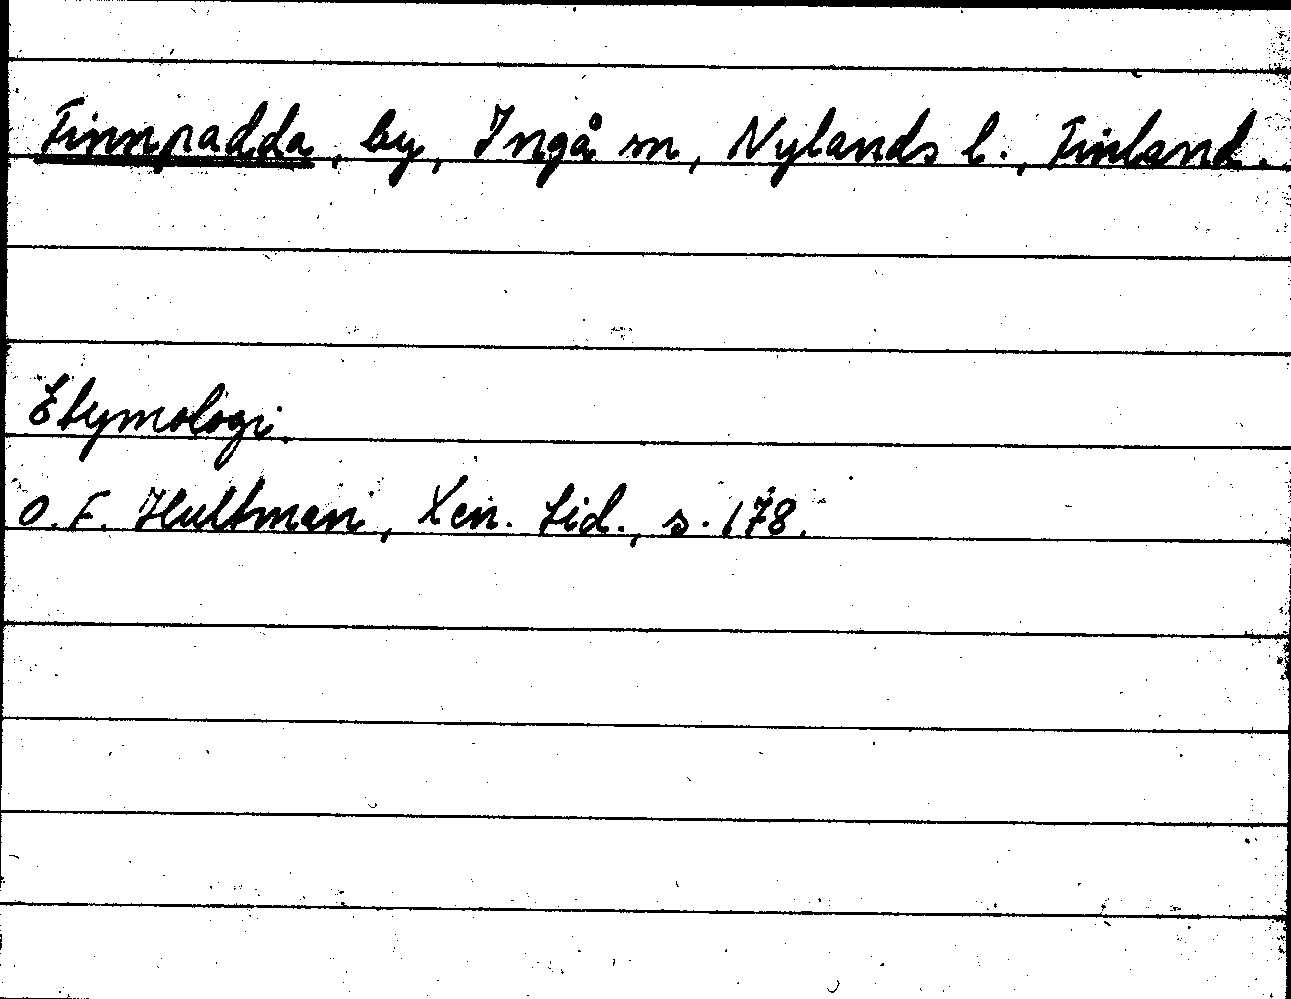 Finnpadda, by, Ingå sn, Nylands l., Finland.
Etymologi.
O. F. Hultman, Xen. Lid., s. 178.